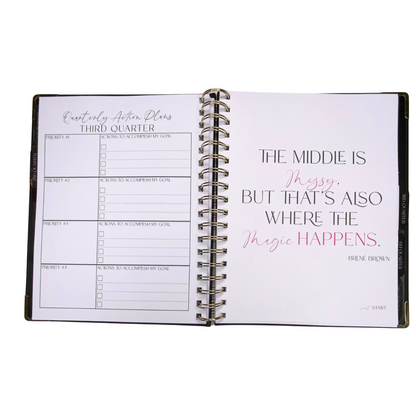 Quarterly Action Plans
THIRD QUARTER
PRIORITY #1
ACTIONS TO ACCOMPLISH MY GOAL
PRIORITY #2
ACTIONS TO ACCOMPLISH MY GOAL
PRIORITY #3
ACTIONS TO ACCOMPLISH MY GOAL
PRIORITY #4
ACTIONS TO ACCOMPLISH MY GOAL
THE MIDDLE IS
Messy,
BUT THAT'S ALSO
WHERE THE
Magic HAPPENS.
-BRENÉ BROWN
just START